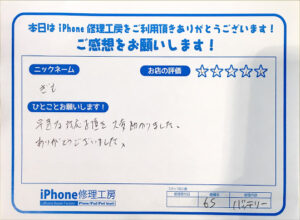 本日は iPhone 修理工房をご利用頂きありがとうございます!
ご感想をお願いします!
ニックネーム
お店の評価 ☆☆☆☆☆
ひとことお願いします!
早急な対応を頂き大変助かりました。
ありがとうございました。
iPhone修理工房
6S
バッテリー